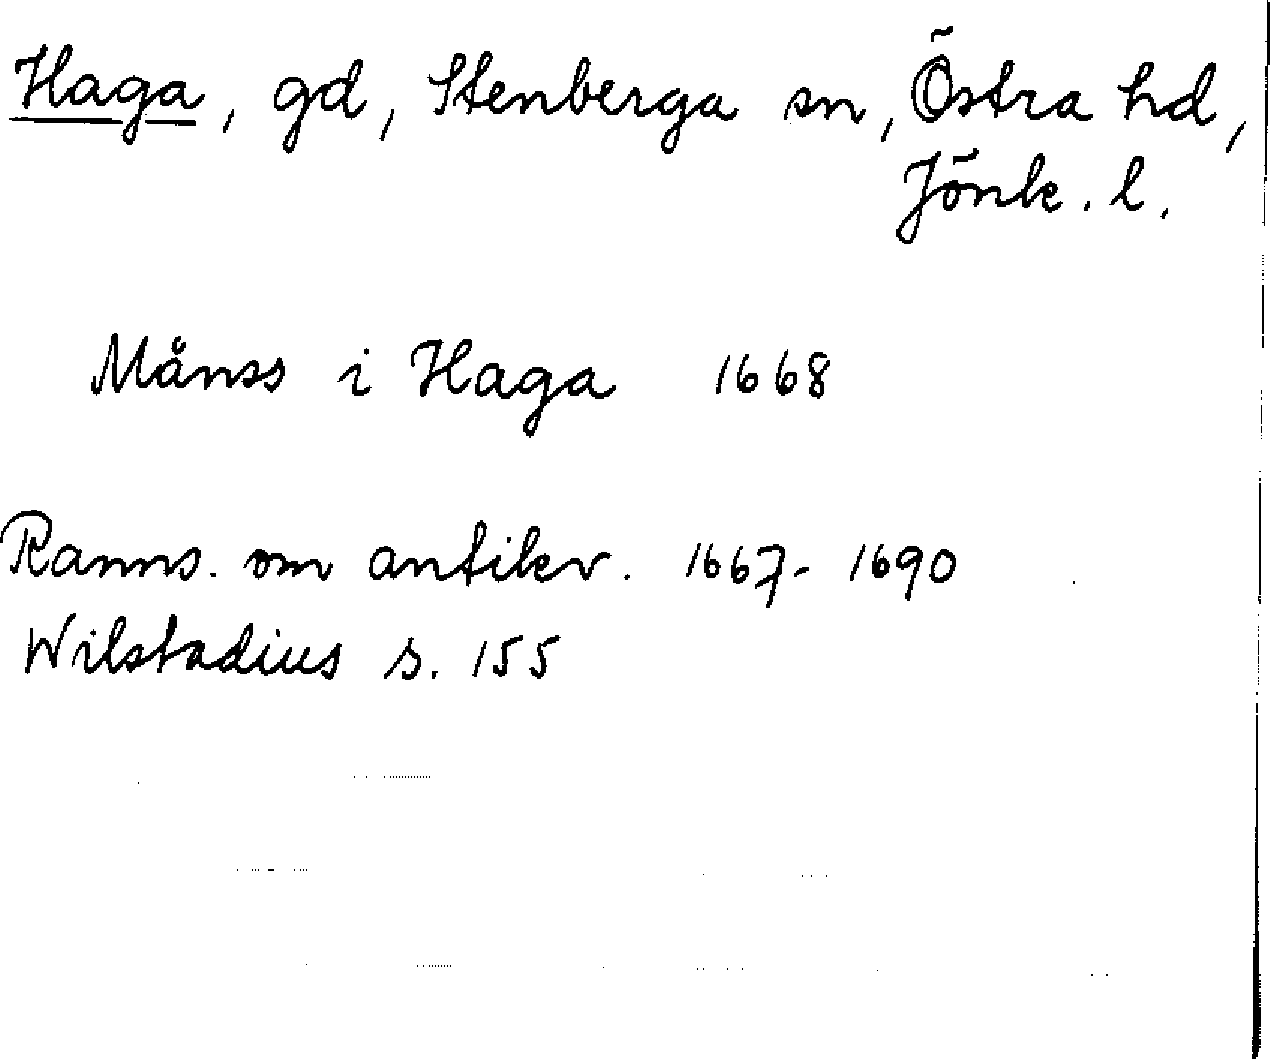 Haga, gd, Stenberga sn, Östra hd,
Jönk. l.
Månss i Haga 1668
Ranns. om antikv. 1667-1690
Wilstadius s. 155